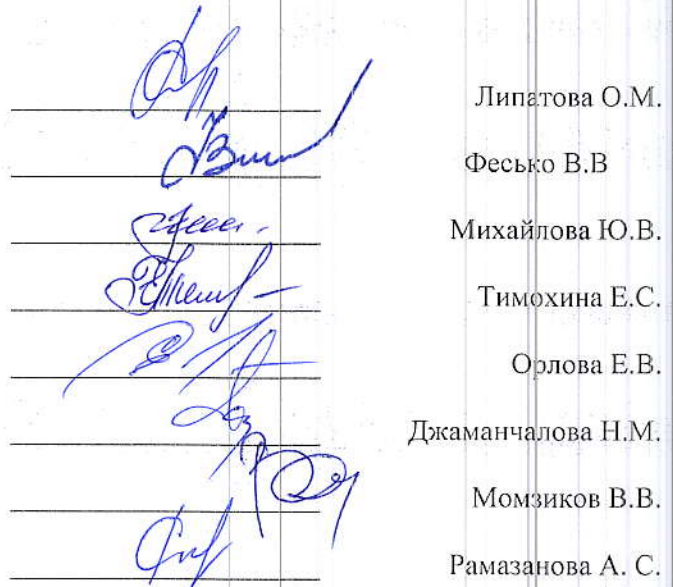 Липатова О.М.
Фесько В.В
Михайлова Ю.В.
Тимохина Е.С.
Орлова Е.В.
Джаманчалова Н.М.
Момзиков В.В.
Рамазанова А. С.